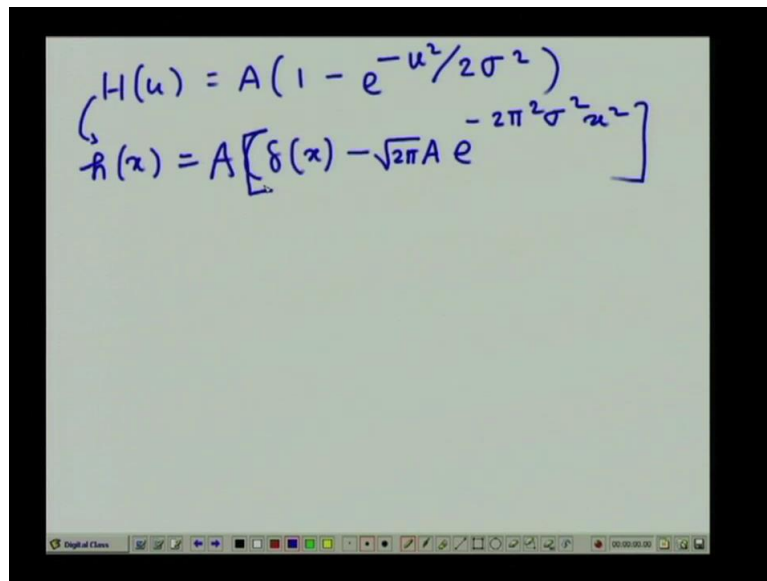 H(u) = A(1 - e^{-u²/2σ²})
h(x) = A[δ(x) - √2π A e^{-2π²σ²x²}]
Digital Class 00:00:00.00